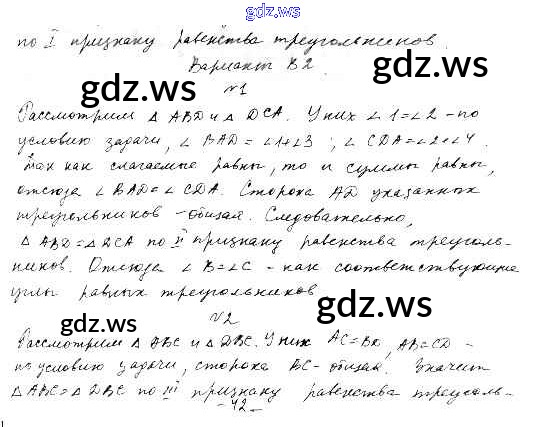 gdz.ws
по I признаку равенства треугольников.
Вариант В2.
gdz.ws gdz.ws
№1
Рассмотрим △ ABD и △ DCA. У них ∠1=∠2 - по
условию задачи, ∠BAD = ∠1+∠3 ; ∠CDA=∠2+∠4.
Так как слагаемые равны, то и суммы равны,
отсюда ∠BAD=∠CDA. Сторона AD указанных
треугольников - общая. Следовательно,
△ABD=△DCA по II признаку равенства треуголь-
ников. Отсюда ∠B=∠C - как соответствующие
углы равных треугольников
gdz.ws gdz.ws
№2
Рассмотрим △ ABC и △ DBC. У них AC=BD, AB=CD -
по условию задачи, сторона BC - общая. Значит
△ABC=△DBC по III признаку равенства треуголь-
-42-
gdz.ws